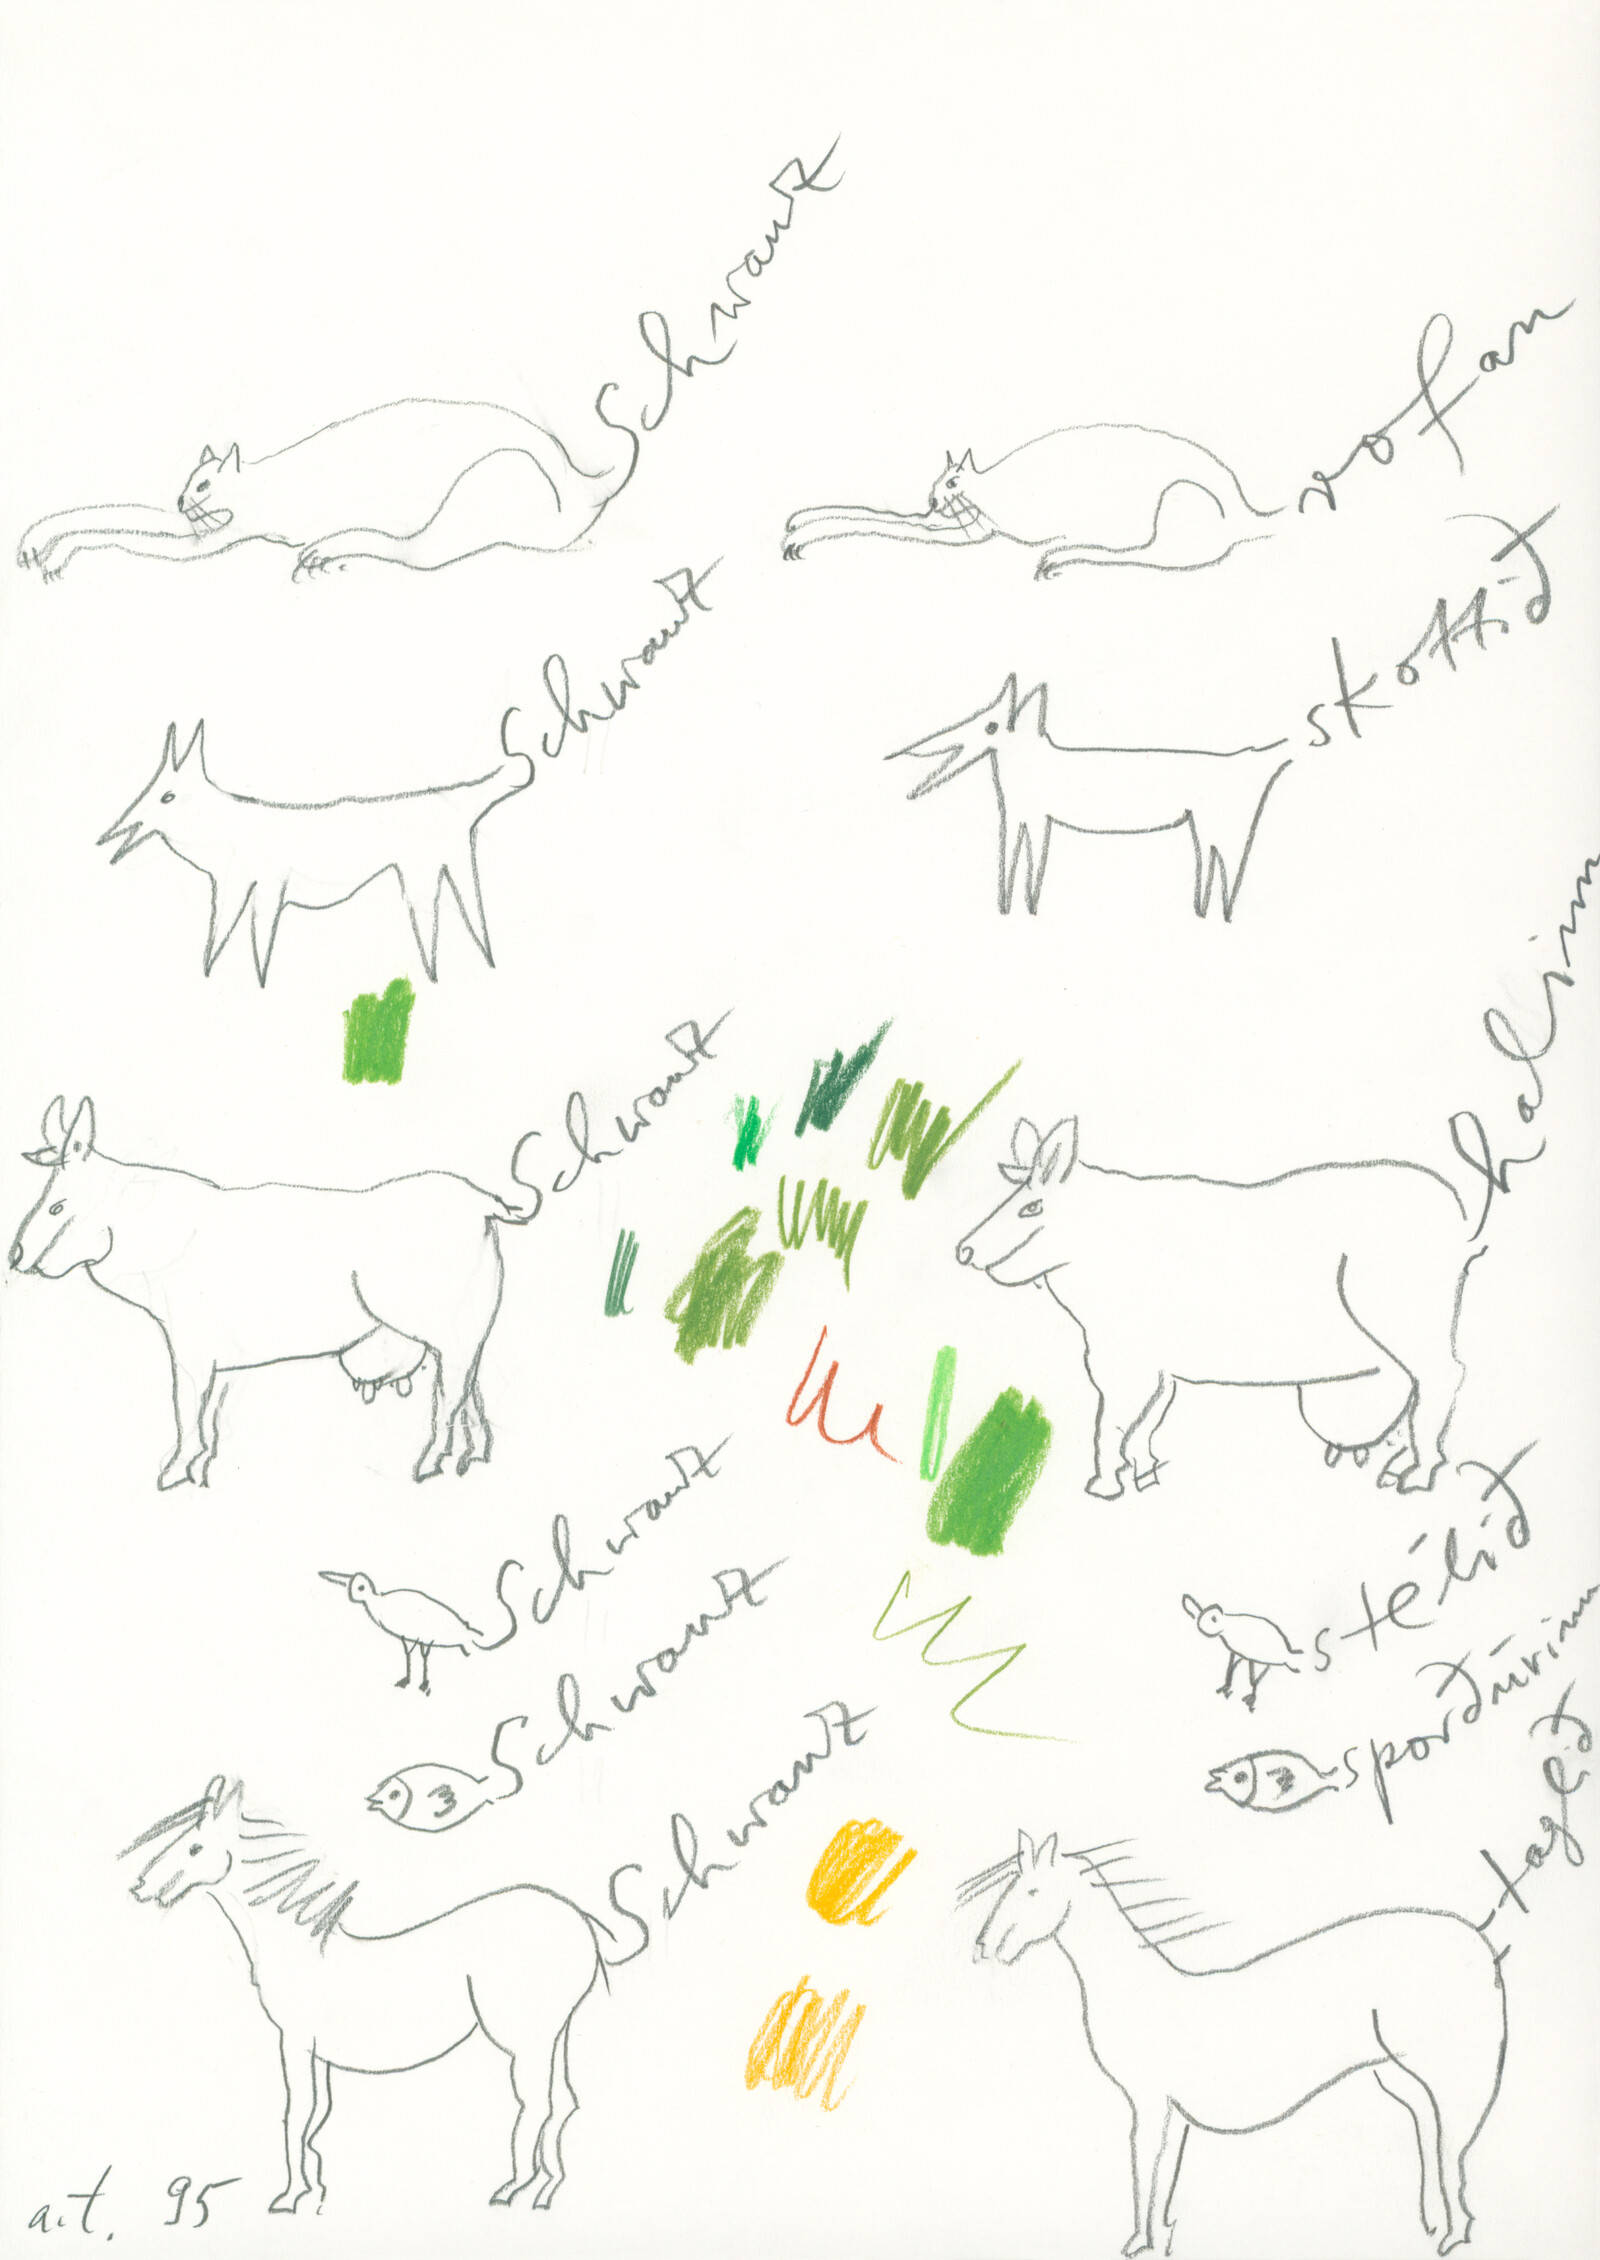 Schwanz
rófan
Schwanz
skottið
Schwanz
halinn
Schwanz
stélið
Schwanz
sporðurinn
Schwanz
taglið
a.t. 95